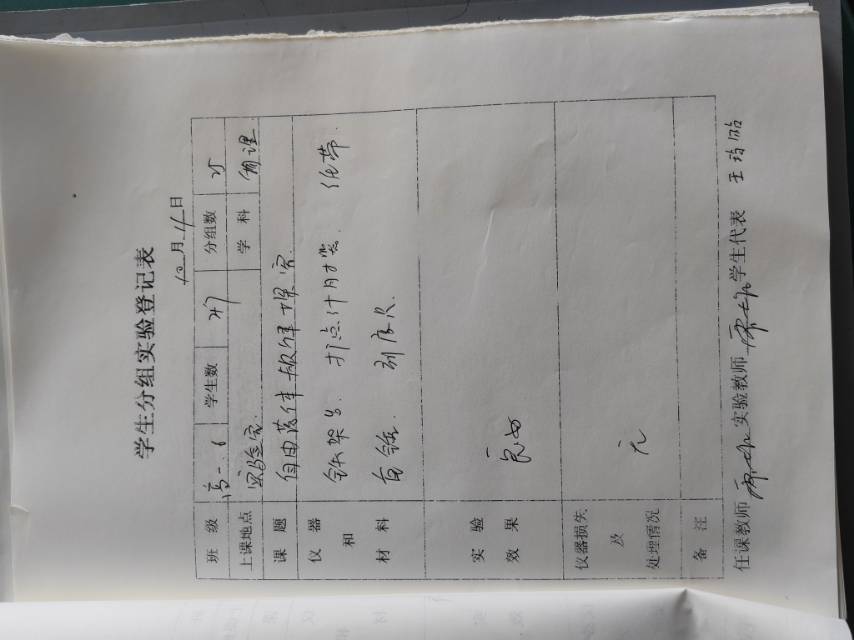 学生分组实验登记表
12月4日
班级 高一.6 学生数 47 分组数 25
上课地点 实验室. 学科 物理.
课题 自由落体规律探究.
仪器和材料 铁架台. 打点计时器. 纸带.
重锤. 刻度尺.
实验效果 良好
仪器损失及处理情况 无
备注
任课教师 实验教师 学生代表 王